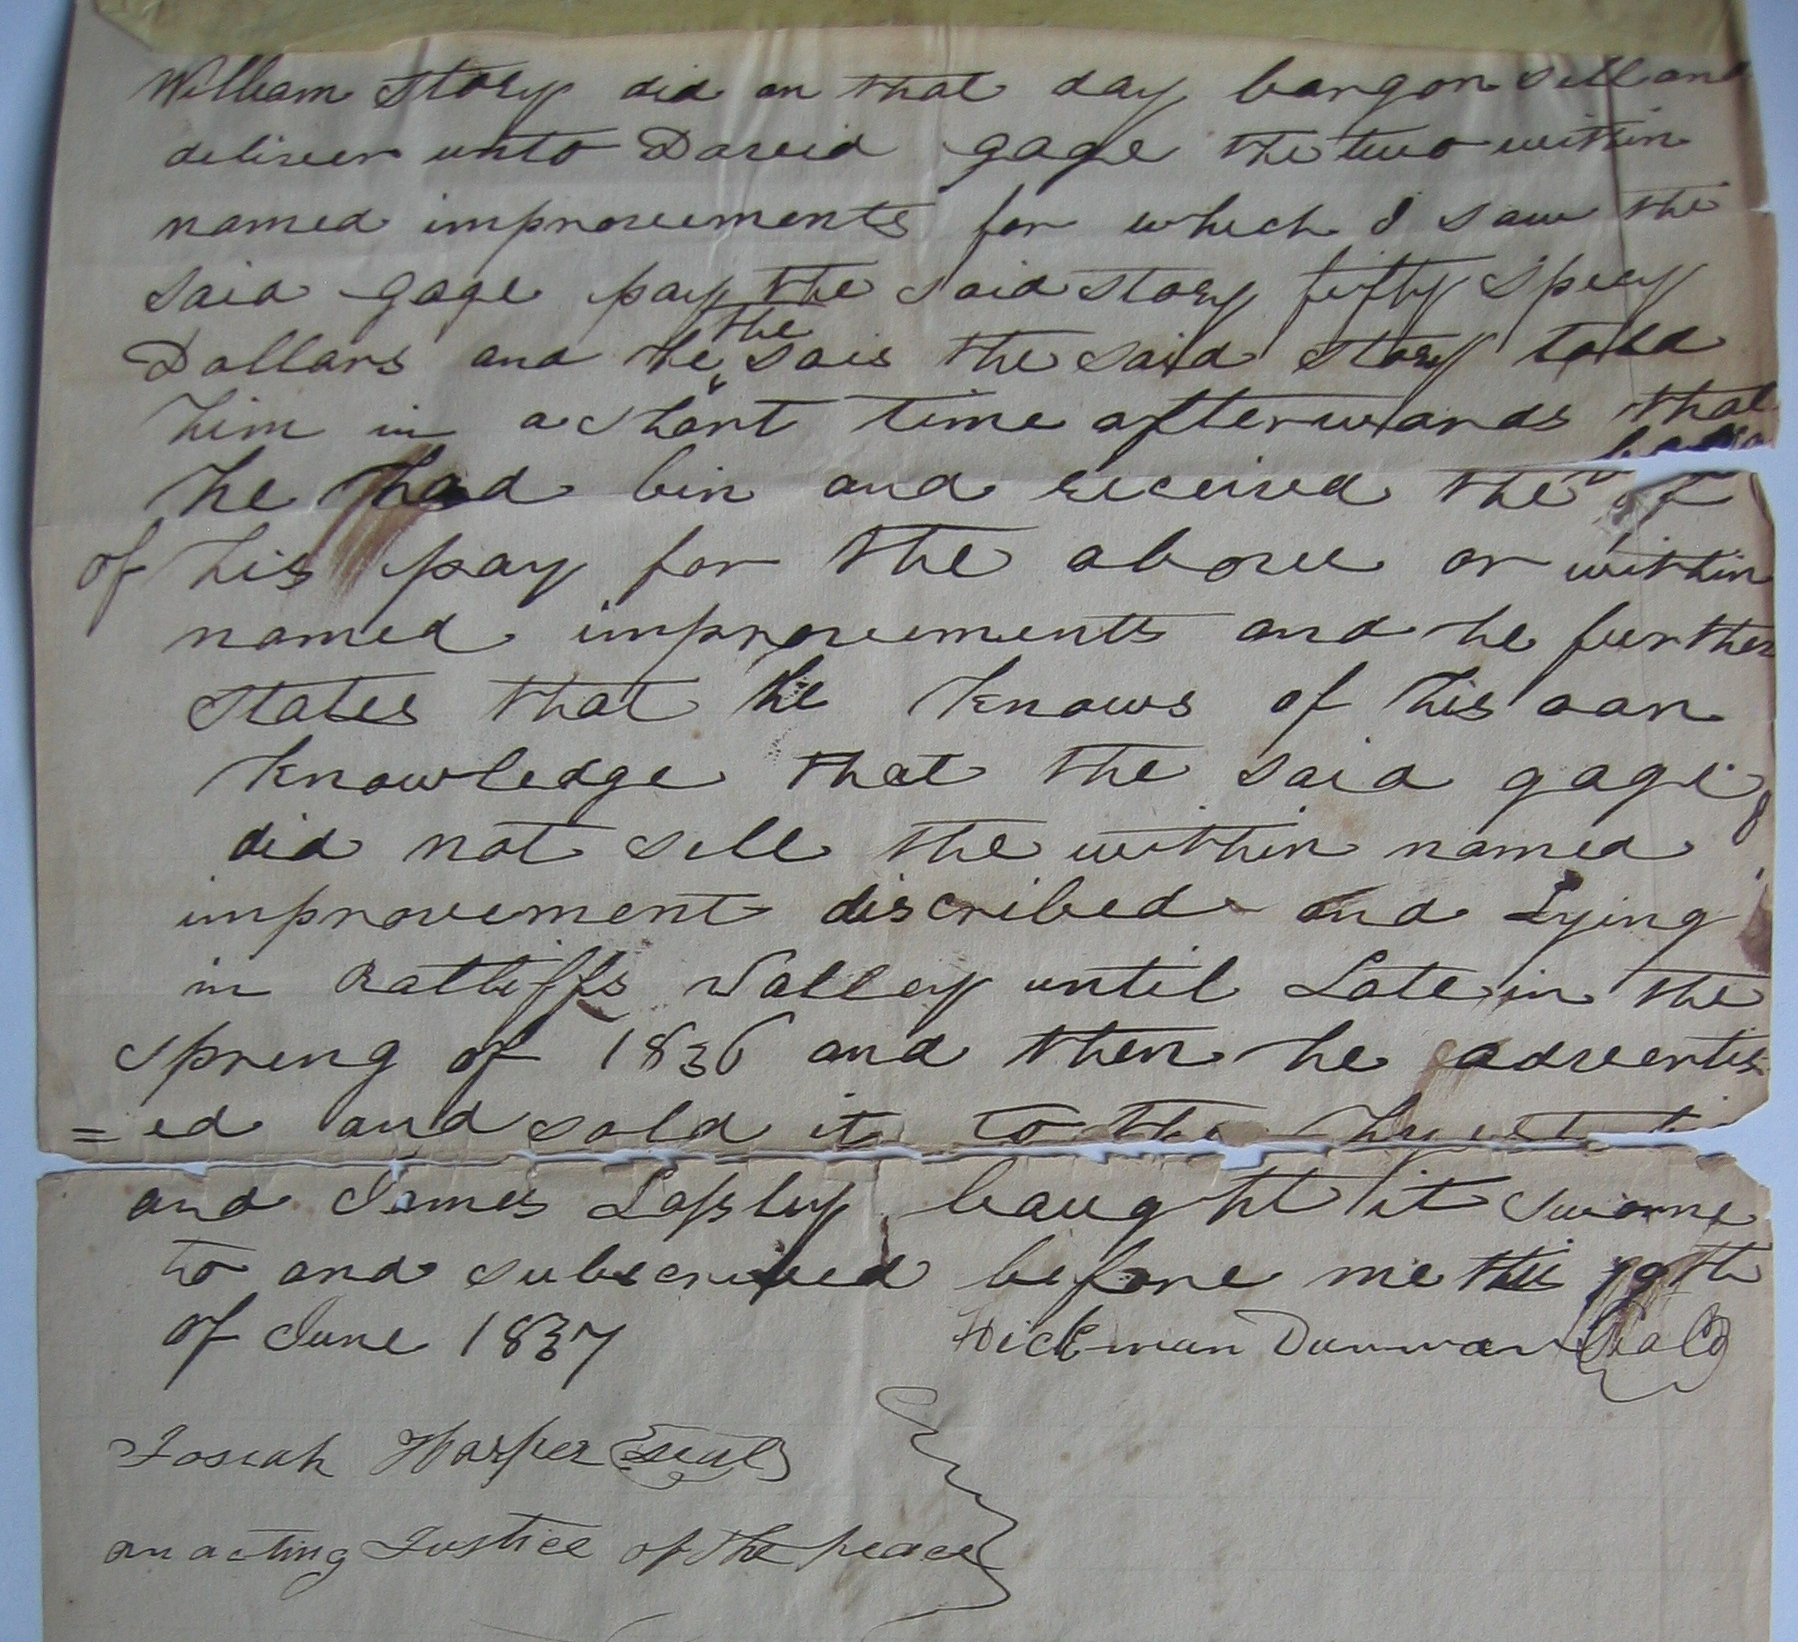 William Story did on that day bargon sell and
deliver unto David gage the two within
named improvements for which I saw the
said gage pay the said story fifty specy
Dollars and he the sais the said story told
him in a short time afterwards that
he had bin and received the
of his pay for the above or within
named improvements and he further
states that he knows of his oan
knowledge that the said gage
did not sell the within named
improvement discribed and Lying
in Ratliffs valley until Late in the
spring of 1836 and then he advertis
=ed and sold it to the hyest
and James Lapsley baught it sworne
to and subscribed before me this
of June 1837 Hickman Dunman Seal
Josiah Harper Seal
an acting Justice of the peace